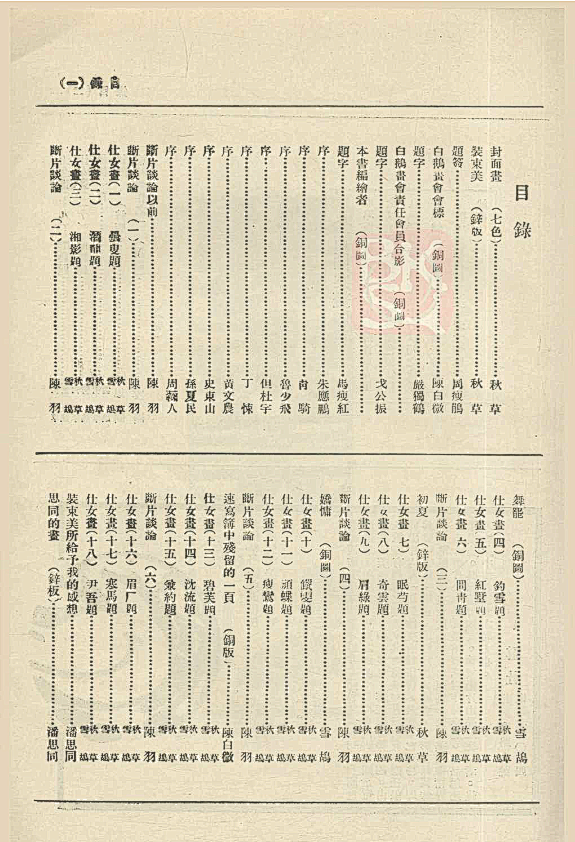 目錄（一）
目錄
封面畫（七色）……秋草
裝束美（鋅版）……秋草
題簽……周瘦鵑
白鵝畫會會標（銅圖）……陳白微
題字……嚴獨鶴
白鵝畫會責任會員合影（銅圖）……
題字……戈公振
本書編繪者（銅圖）……
題字……馬瘦紅
序……朱應鵬
序……騎
序……魯少飛
序……但杜宇
序……丁悚
序……黃文農
序……史東山
序……孫夏民
序……周人
斷片談論以前……陳羽
斷片談論（一）……陳羽
仕女畫（一）曇叟題……秋草 雪鴣
仕女畫（二）題……秋草 雪鴣
仕女畫（三）湘影題……秋草 雪鴣
斷片談論（二）……陳羽
舞罷（銅圖）……雪鴣
仕女畫（四）釣雪題……秋草 雪鴣
仕女畫（五）紅墅題……秋草 雪鴣
仕女畫（六）問書題……秋草 雪鴣
斷片談論（三）……陳羽
初夏（鋅版）……秋草
仕女畫（七）眠芍題……秋草 雪鴣
仕女畫（八）奇雲題……秋草 雪鴣
仕女畫（九）眉綠題……秋草 雪鴣
斷片談論（四）……陳羽
嬌慵（銅圖）……雪鴣
仕女畫（十）題……秋草 雪鴣
仕女畫（十一）頑蝶題……秋草 雪鴣
仕女畫（十二）瘦鶯題……秋草 雪鴣
斷片談論（五）……陳羽
速寫簿中殘留的一頁（銅版）……陳白微
仕女畫（十三）碧芙題……秋草 雪鴣
仕女畫（十四）沈流題……秋草 雪鴣
仕女畫（十五）綠約題……秋草 雪鴣
斷片談論（六）……陳羽
仕女畫（十六）眉厂題……秋草 雪鴣
仕女畫（十七）寒馬題……秋草 雪鴣
仕女畫（十八）尹吾題……秋草 雪鴣
裝束美所給予我的感想……潘思同
思同的畫（鋅板）……潘思同